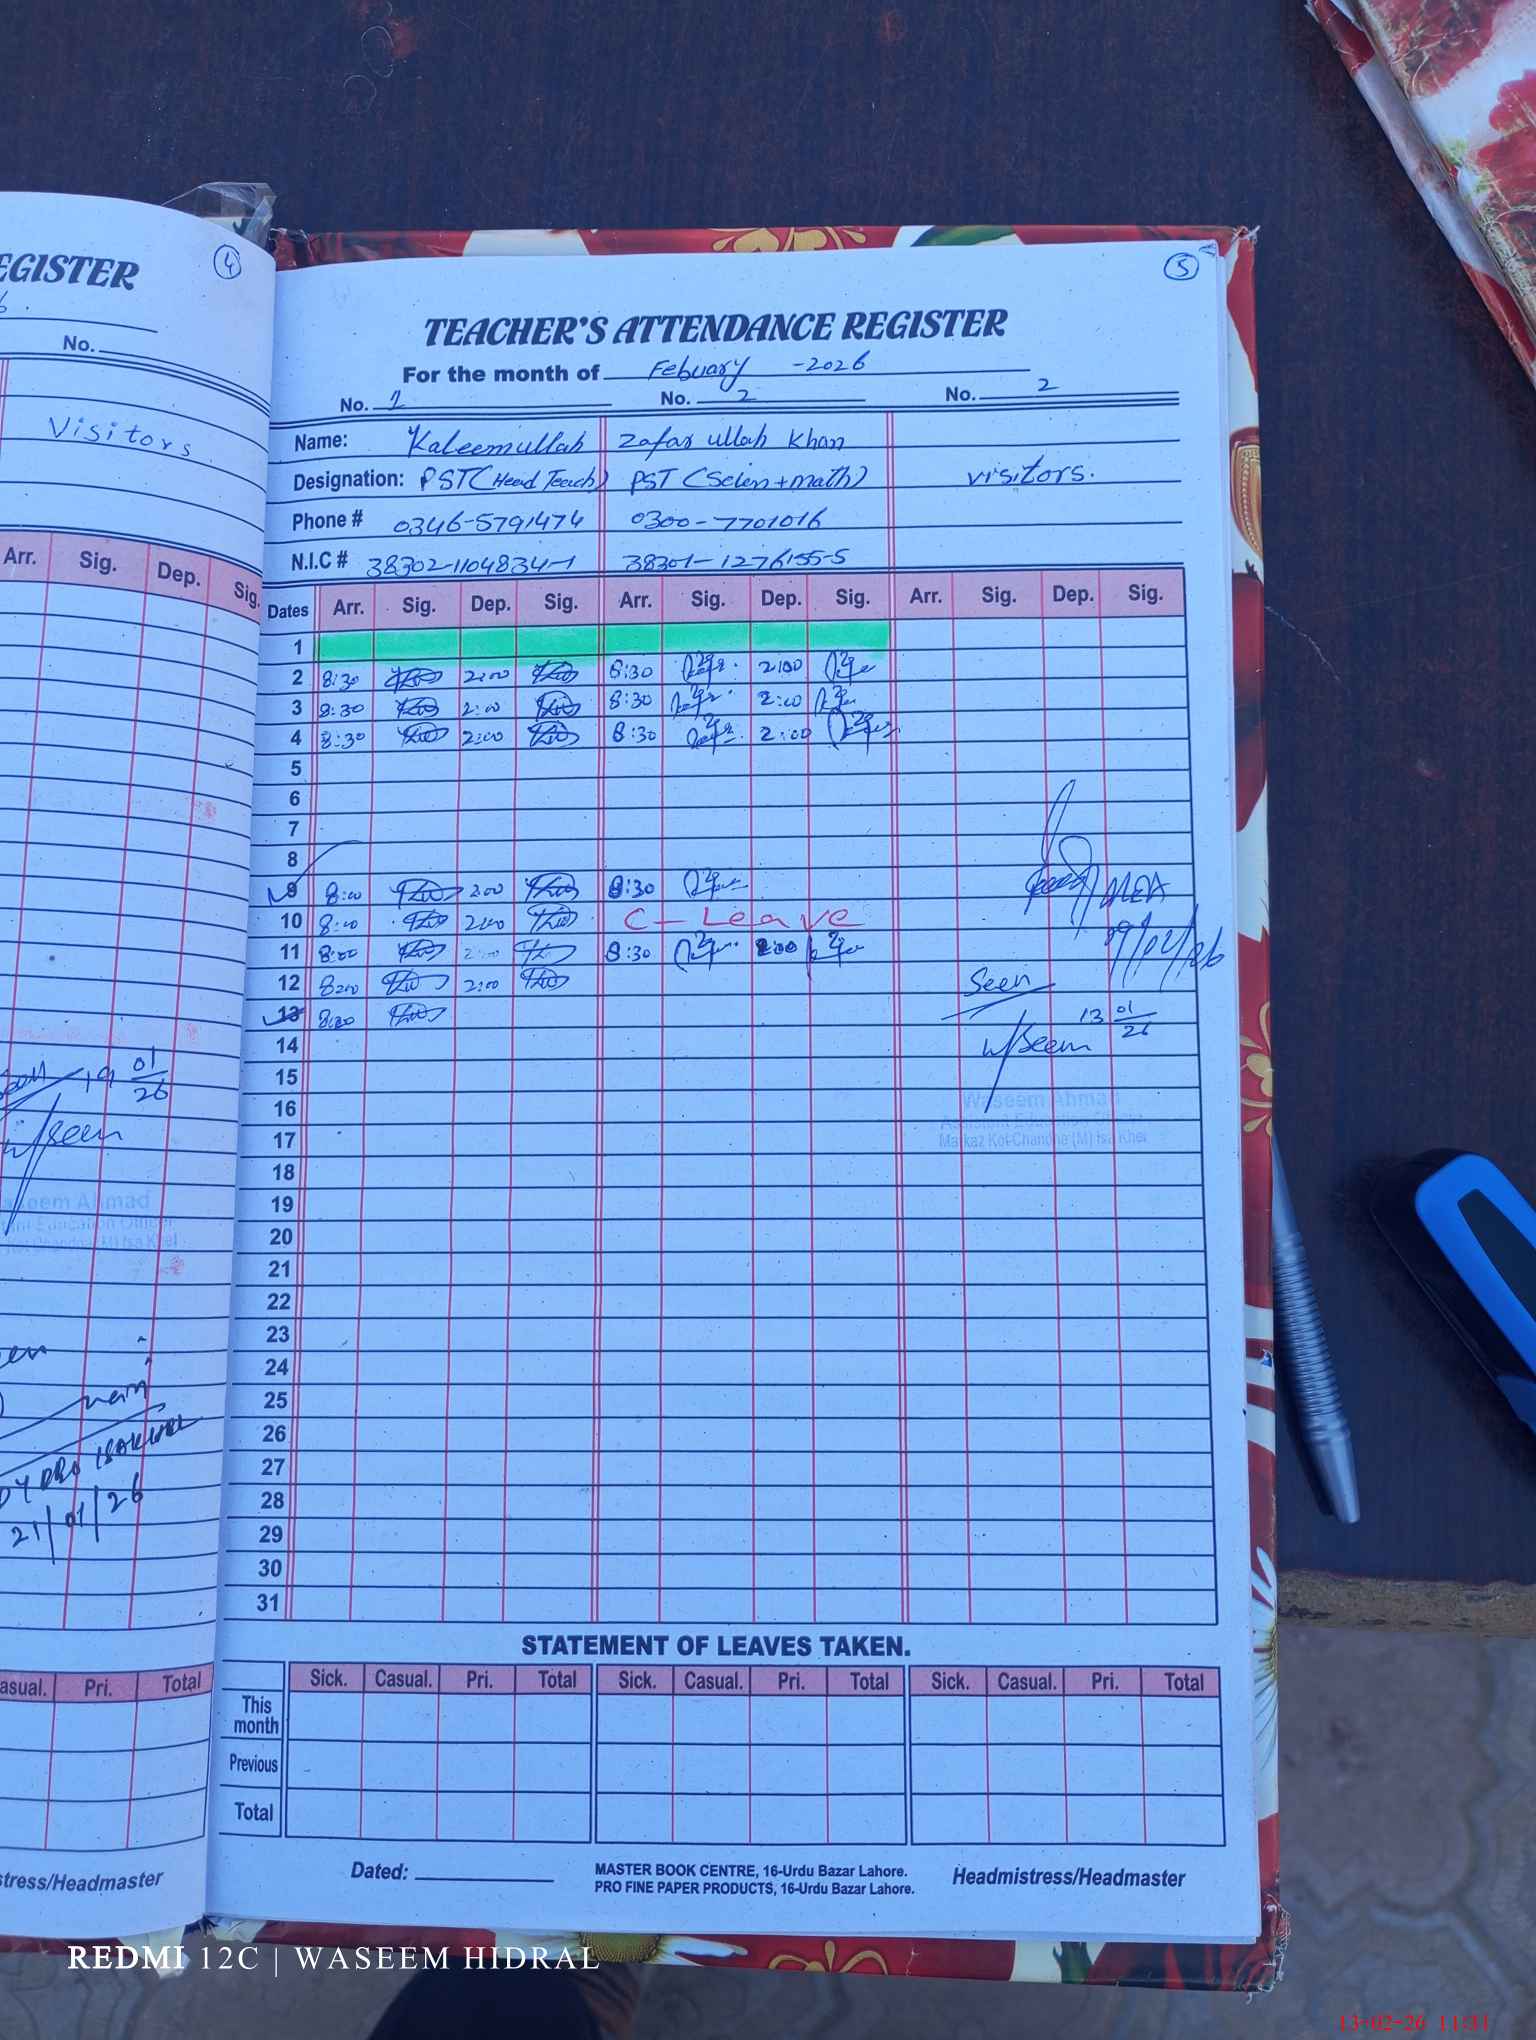 EGISTER
4
No.
Visitors
Arr. Sig. Dep. Sig.
19 01/26
w/seem
Waseem Ahmad
DY DEO ISAKHEL
21/01/26
asual. Pri. Total
stress/Headmaster
5
TEACHER'S ATTENDANCE REGISTER
For the month of Febuary -2026
No. 1 No. 2 No. 2
Name: Kaleemullah Zafar ullah Khan
Designation: PST (Head Teach) PST (Scien+math) visitors.
Phone # 0346-5791474 0300-7701016
N.I.C # 38302-1104834-1 38301-1276155-5
Dates Arr. Sig. Dep. Sig. Arr. Sig. Dep. Sig. Arr. Sig. Dep. Sig.
1
2 8:30 2:00 8:30 2:00
3 8:30 2:00 8:30 2:00
4 8:30 2:00 8:30 2:00
5
6
7
8
9 8:00 200 8:30 MEA
10 8:00 2:00 C-Leave
09/02/26
11 8:00 2:00 8:30 2:00
12 8:00 2:00 Seen
13 8:00 13 01/26
14 w/seem
15
16 Waseem Ahmad
Assistant Education Officer
17 Markaz Kot Chandna (M) Isa Khel
18
19
20
21
22
23
24
25
26
27
28
29
30
31
STATEMENT OF LEAVES TAKEN.
Sick. Casual. Pri. Total Sick. Casual. Pri. Total Sick. Casual. Pri. Total
This month
Previous
Total
Dated: MASTER BOOK CENTRE, 16-Urdu Bazar Lahore. Headmistress/Headmaster
PRO FINE PAPER PRODUCTS, 16-Urdu Bazar Lahore.
REDMI 12C | WASEEM HIDRAL
13-02-26 11:31